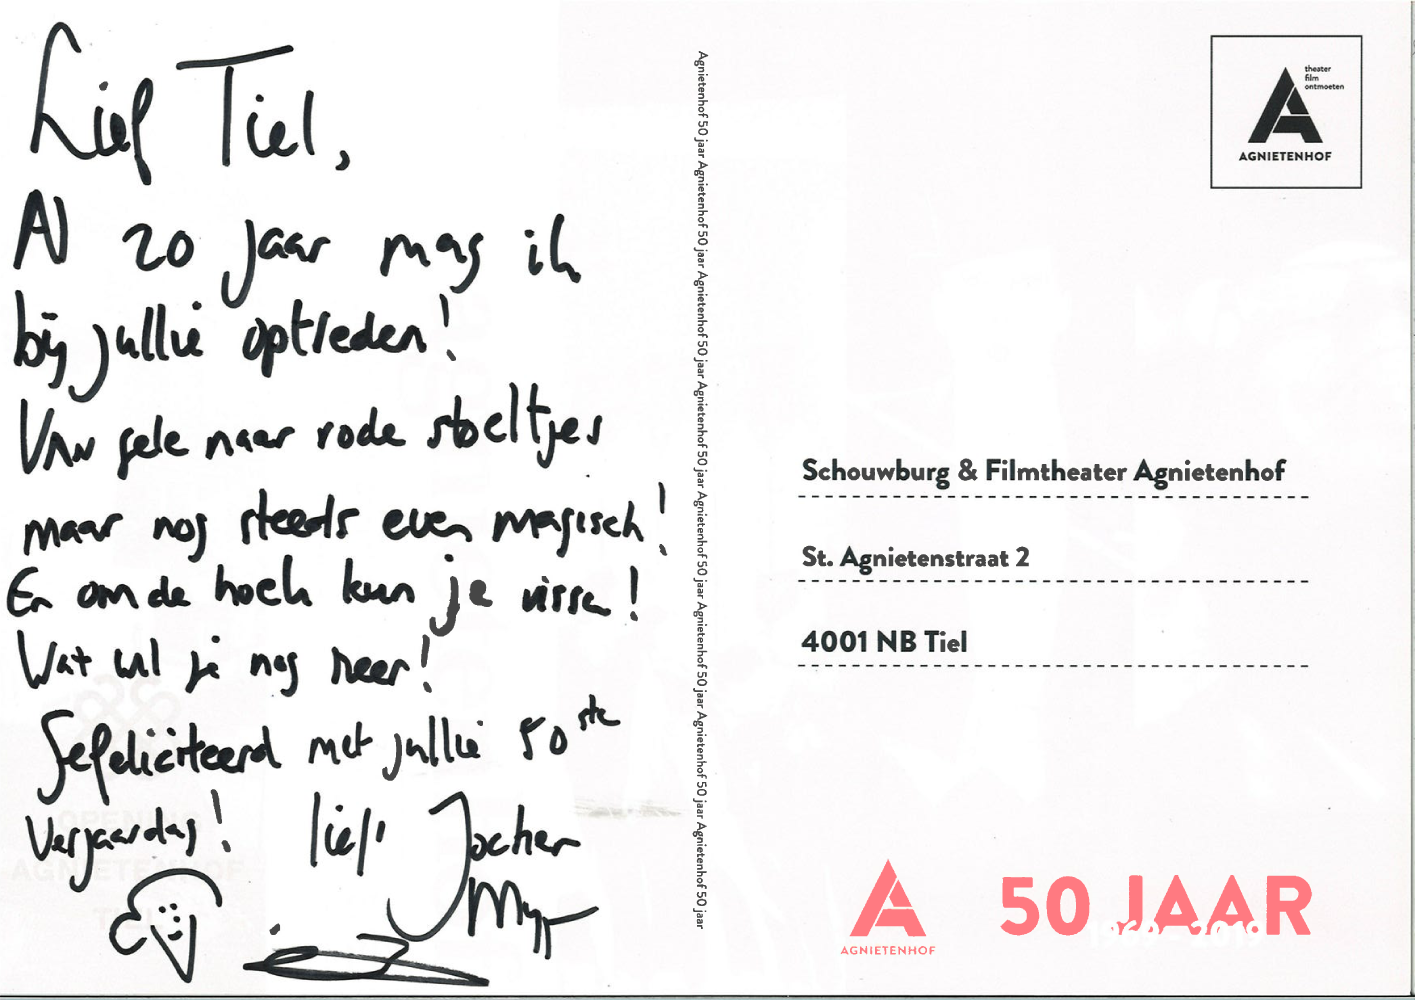 Lief Tiel,
Al 20 jaar mag ik
bij jullie optreden!
Van gele naar rode stoeltjes
maar nog steeds even magisch!
En om de hoek kun je vissen!
Wat wil je nog meer!
Gefeliciteerd met jullie 50ste
Verjaardag! liefs Jochem
Myjer
Agnietenhof 50 jaar Agnietenhof 50 jaar Agnietenhof 50 jaar Agnietenhof 50 jaar Agnietenhof 50 jaar Agnietenhof 50 jaar Agnietenhof 50 jaar Agnietenhof 50 jaar
theater
film
ontmoeten
AGNIETENHOF
Schouwburg & Filmtheater Agnietenhof
St. Agnietenstraat 2
4001 NB Tiel
AGNIETENHOF
50 JAAR
1969 - 2019
OPENING
AGNIETENHOF
TIEL